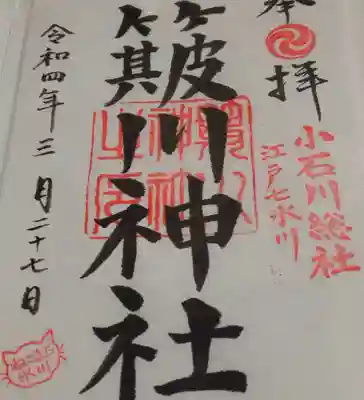 奉拝
小石川総社
江戸七氷川
簸川神社
令和四年三月二十七日